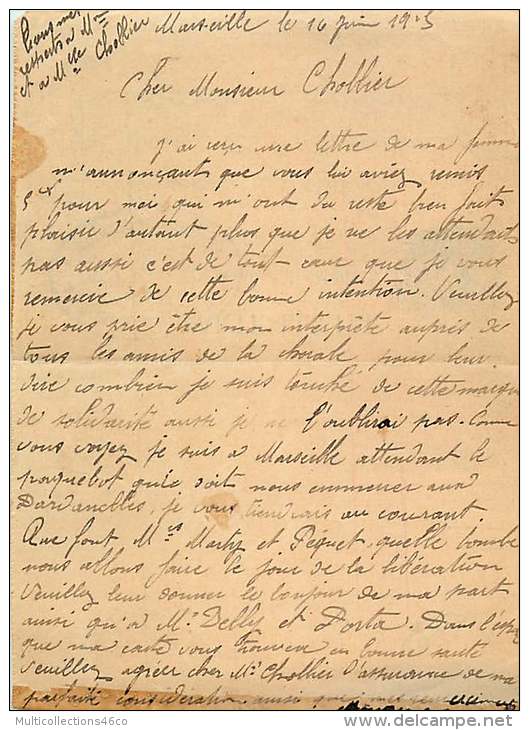 Tous mes
respects à Mme
et à Mlle Chollier
Marseille le 16 Juin 1915
Cher Monsieur Chollier
J'ai reçu une lettre de ma femme
m'annonçant que vous lui aviez remis
5 pour moi qui m'ont du reste bien fait
plaisir d'autant plus que je ne les attendait
pas aussi c'est de tout cœur que je vous
remercie de cette bonne intention. Veuillez
je vous prie être mon interprète auprès de
tous les amis de la chorale pour leur
dire combien je suis touché de cette marque
de solidarité aussi je ne l'oublirai pas. Comme
vous voyez je suis à Marseille attendant le
paquebot qui doit nous emmener aux
Dardanelles, je vous tiendrais au courant
Que font Mrs Marty et Péquet, quelle bombe
nous allons faire le jour de la libération
Veuillez leur donner le bonjour de ma part
ainsi qu'à Mr Delly et Porta. Dans l'espoir
que ma carte vous trouvera en bonne santé
Veuillez agréer cher Mr Chollier l'assurance de ma
parfaite considération ainsi que mes
Multicollections46co